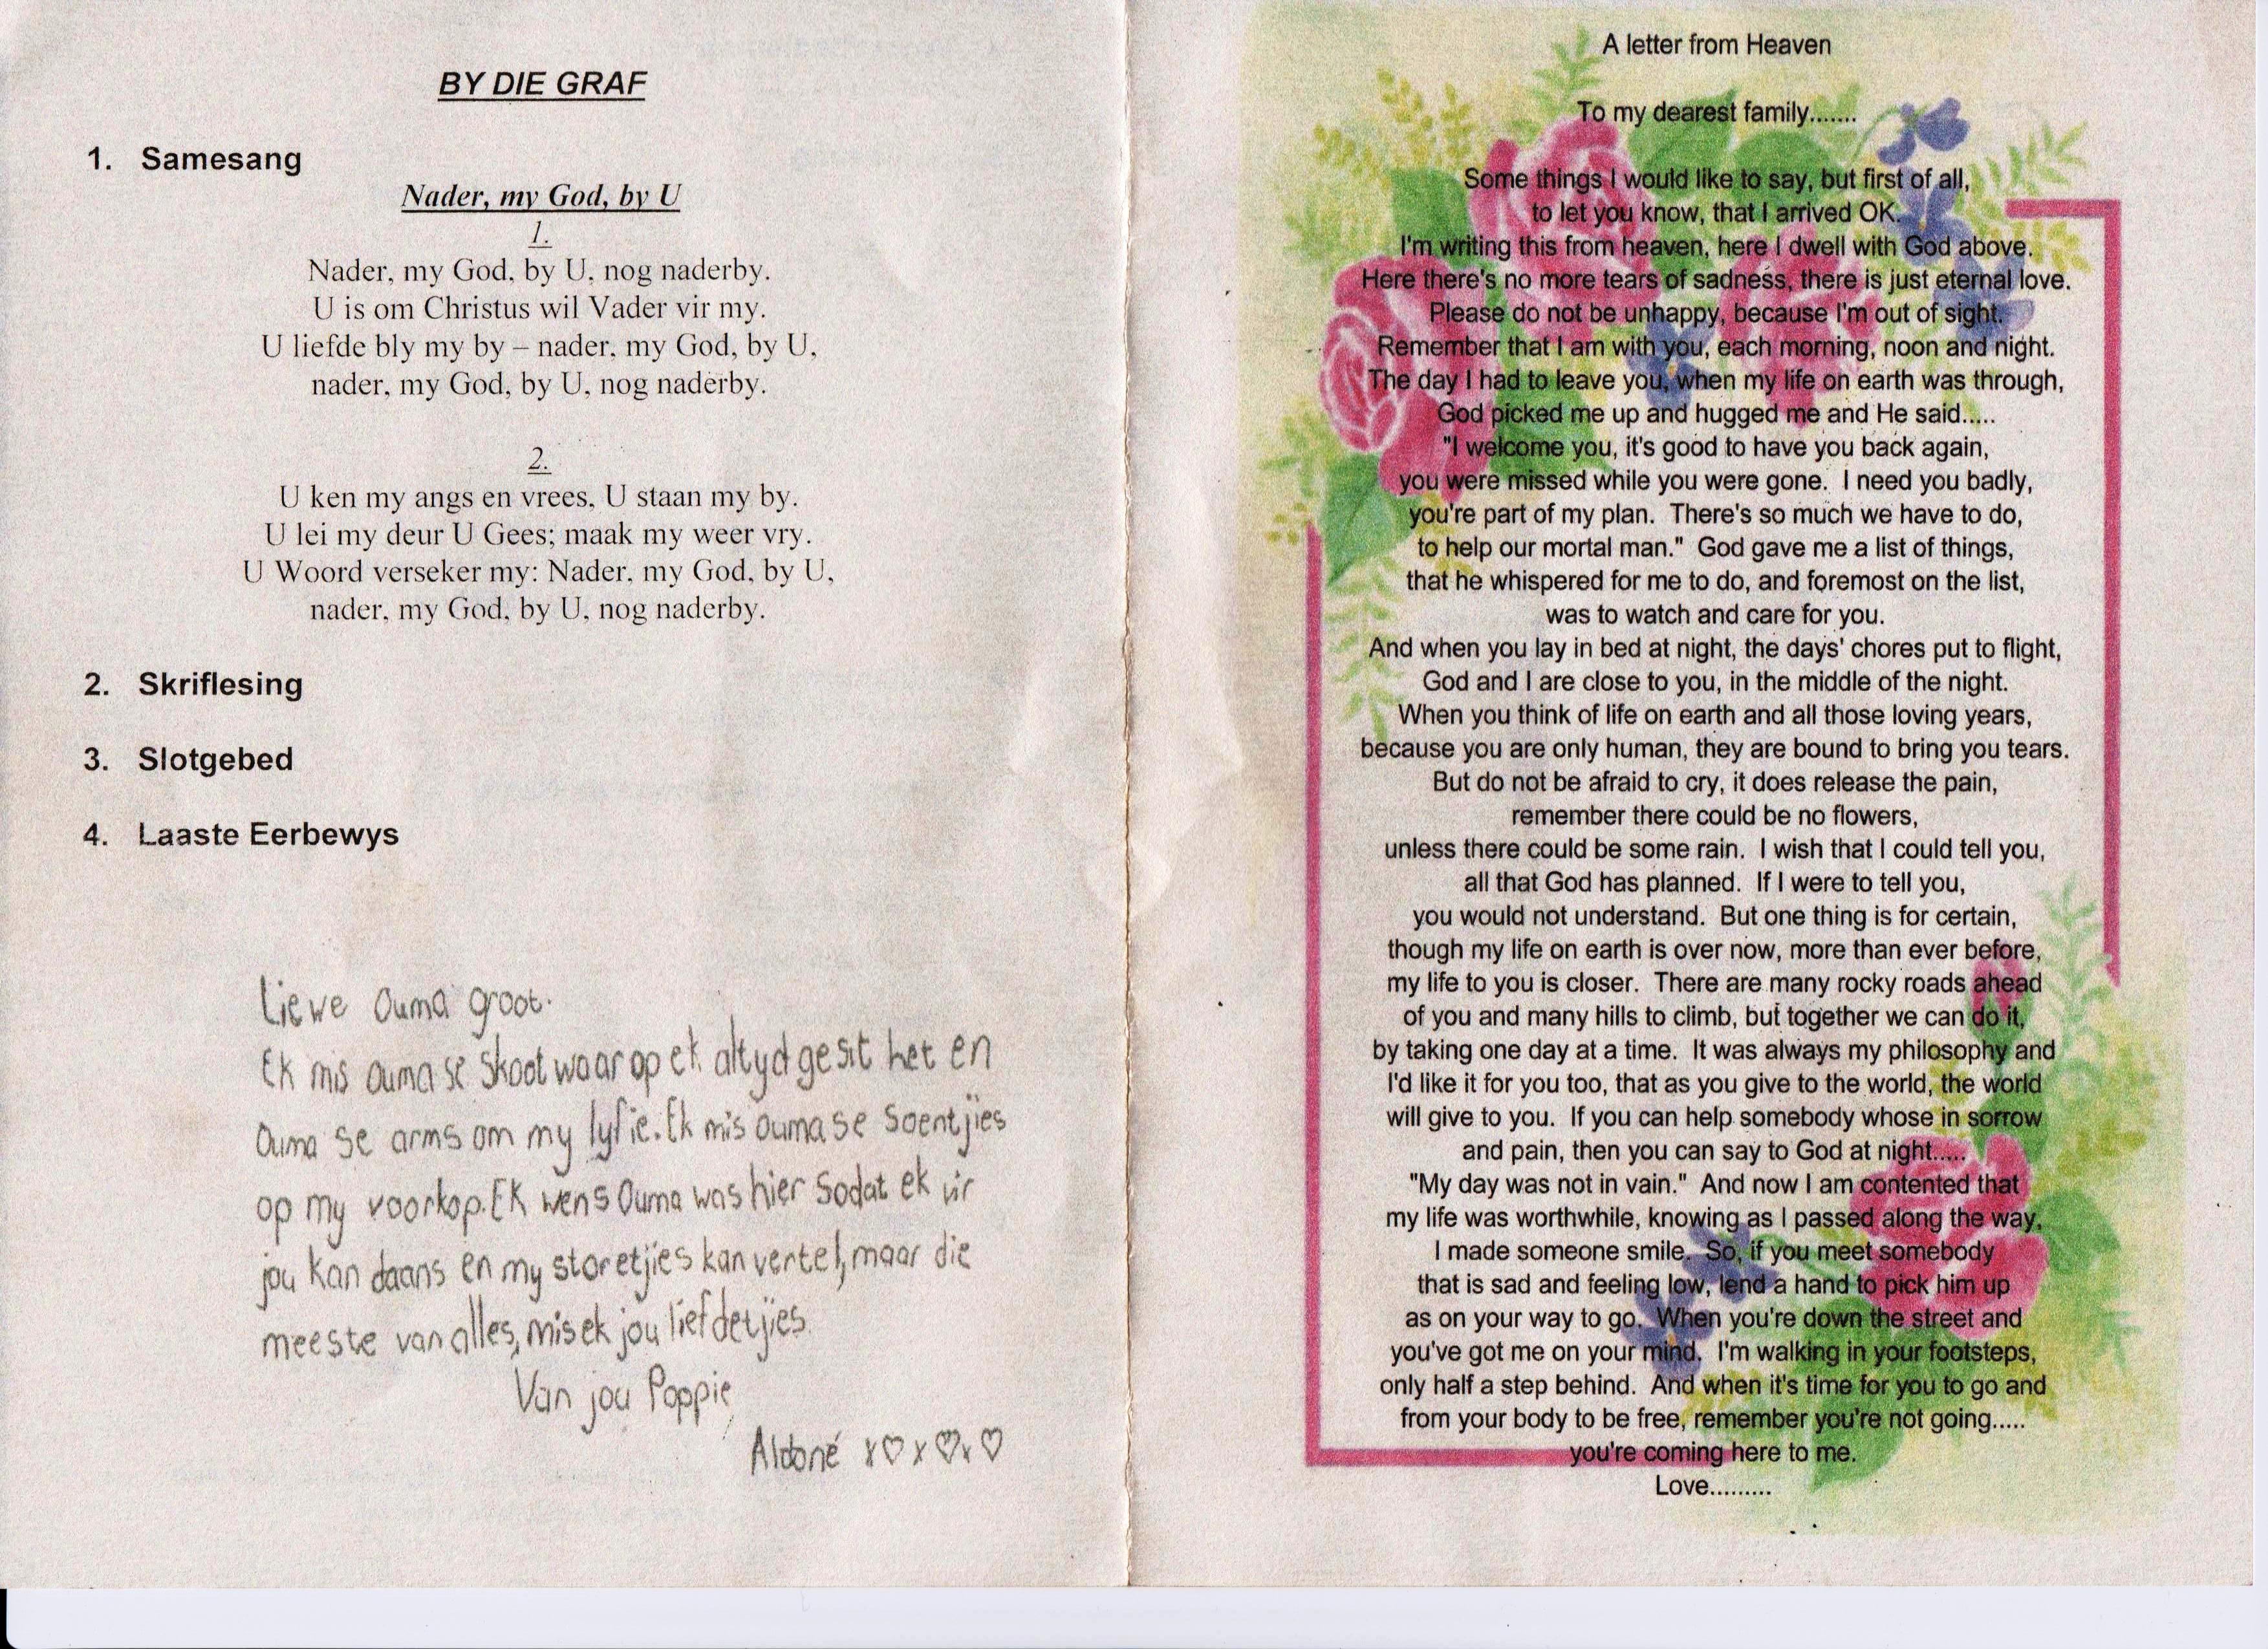 BY DIE GRAF
1. Samesang
Nader, my God, by U
1.
Nader, my God, by U, nog naderby.
U is om Christus wil Vader vir my.
U liefde bly my by – nader, my God, by U,
nader, my God, by U, nog naderby.
2.
U ken my angs en vrees, U staan my by.
U lei my deur U Gees; maak my weer vry.
U Woord verseker my: Nader, my God, by U,
nader, my God, by U, nog naderby.
2. Skriflesing
3. Slotgebed
4. Laaste Eerbewys
Liewe Ouma groot.
Ek mis ouma se skoot waar op ek altyd gesit het en
Ouma se arms om my lyfie. Ek mis ouma se soentjies
op my voorkop. Ek wens Ouma was hier sodat ek vir
jou kan daans en my storetjies kan vertel, maar die
meeste van alles, mis ek jou liefdetjies.
Van jou Poppie
Aldoné x♡x♡x♡
A letter from Heaven
To my dearest family.......
Some things I would like to say, but first of all,
to let you know, that I arrived OK.
I'm writing this from heaven, here I dwell with God above.
Here there's no more tears of sadness, there is just eternal love.
Please do not be unhappy, because I'm out of sight.
Remember that I am with you, each morning, noon and night.
The day I had to leave you, when my life on earth was through,
God picked me up and hugged me and He said.....
"I welcome you, it's good to have you back again,
you were missed while you were gone. I need you badly,
you're part of my plan. There's so much we have to do,
to help our mortal man." God gave me a list of things,
that he whispered for me to do, and foremost on the list,
was to watch and care for you.
And when you lay in bed at night, the days' chores put to flight,
God and I are close to you, in the middle of the night.
When you think of life on earth and all those loving years,
because you are only human, they are bound to bring you tears.
But do not be afraid to cry, it does release the pain,
remember there could be no flowers,
unless there could be some rain. I wish that I could tell you,
all that God has planned. If I were to tell you,
you would not understand. But one thing is for certain,
though my life on earth is over now, more than ever before,
my life to you is closer. There are many rocky roads ahead
of you and many hills to climb, but together we can do it,
by taking one day at a time. It was always my philosophy and
I'd like it for you too, that as you give to the world, the world
will give to you. If you can help somebody whose in sorrow
and pain, then you can say to God at night.....
"My day was not in vain." And now I am contented that
my life was worthwhile, knowing as I passed along the way,
I made someone smile. So, if you meet somebody
that is sad and feeling low, lend a hand to pick him up
as on your way to go. When you're down the street and
you've got me on your mind. I'm walking in your footsteps,
only half a step behind. And when it's time for you to go and
from your body to be free, remember you're not going.....
you're coming here to me.
Love.........